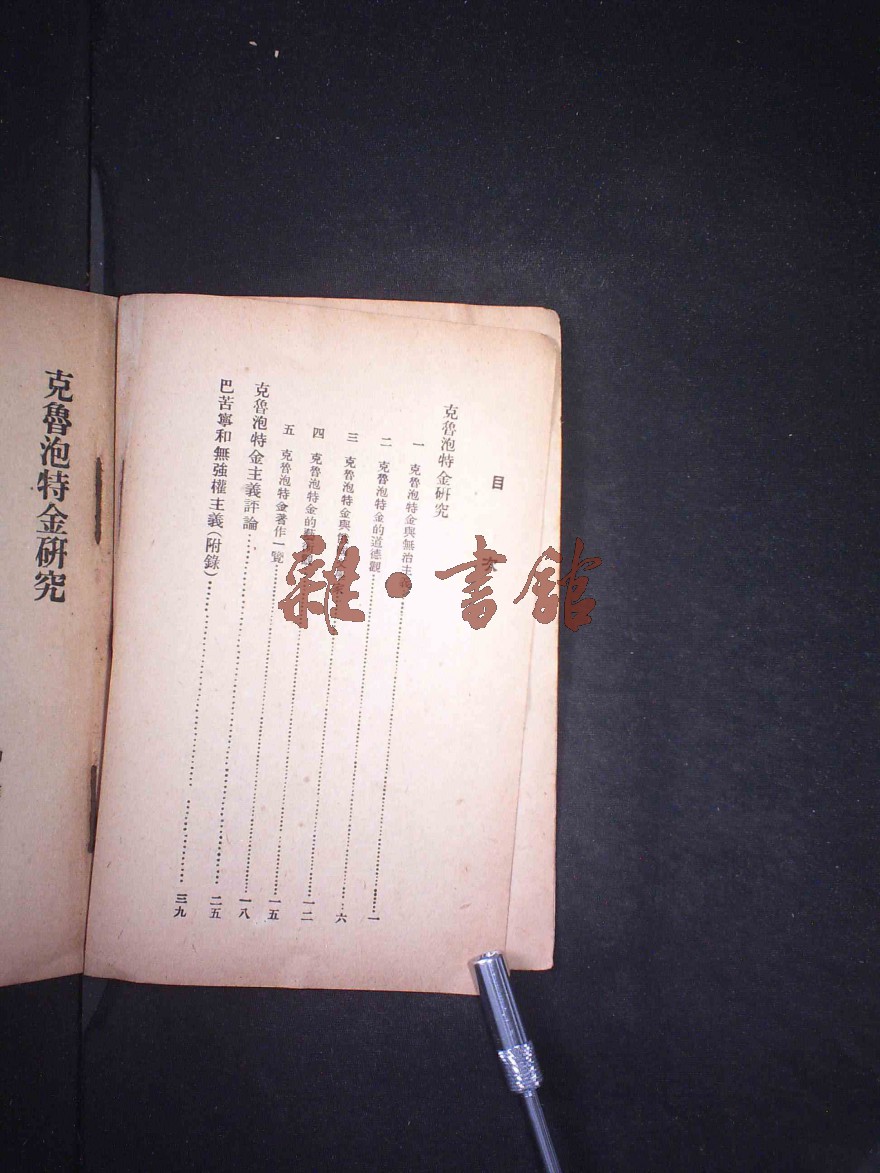 目次
克魯泡特金研究
一 克魯泡特金與無治主義……一
二 克魯泡特金的道德觀……六
三 克魯泡特金與……一二
四 克魯泡特金的藝……一五
五 克魯泡特金著作一覽……一八
克魯泡特金主義評論……二五
巴苦寧和無強權主義(附錄)……三九
克魯泡特金研究
雜·書館